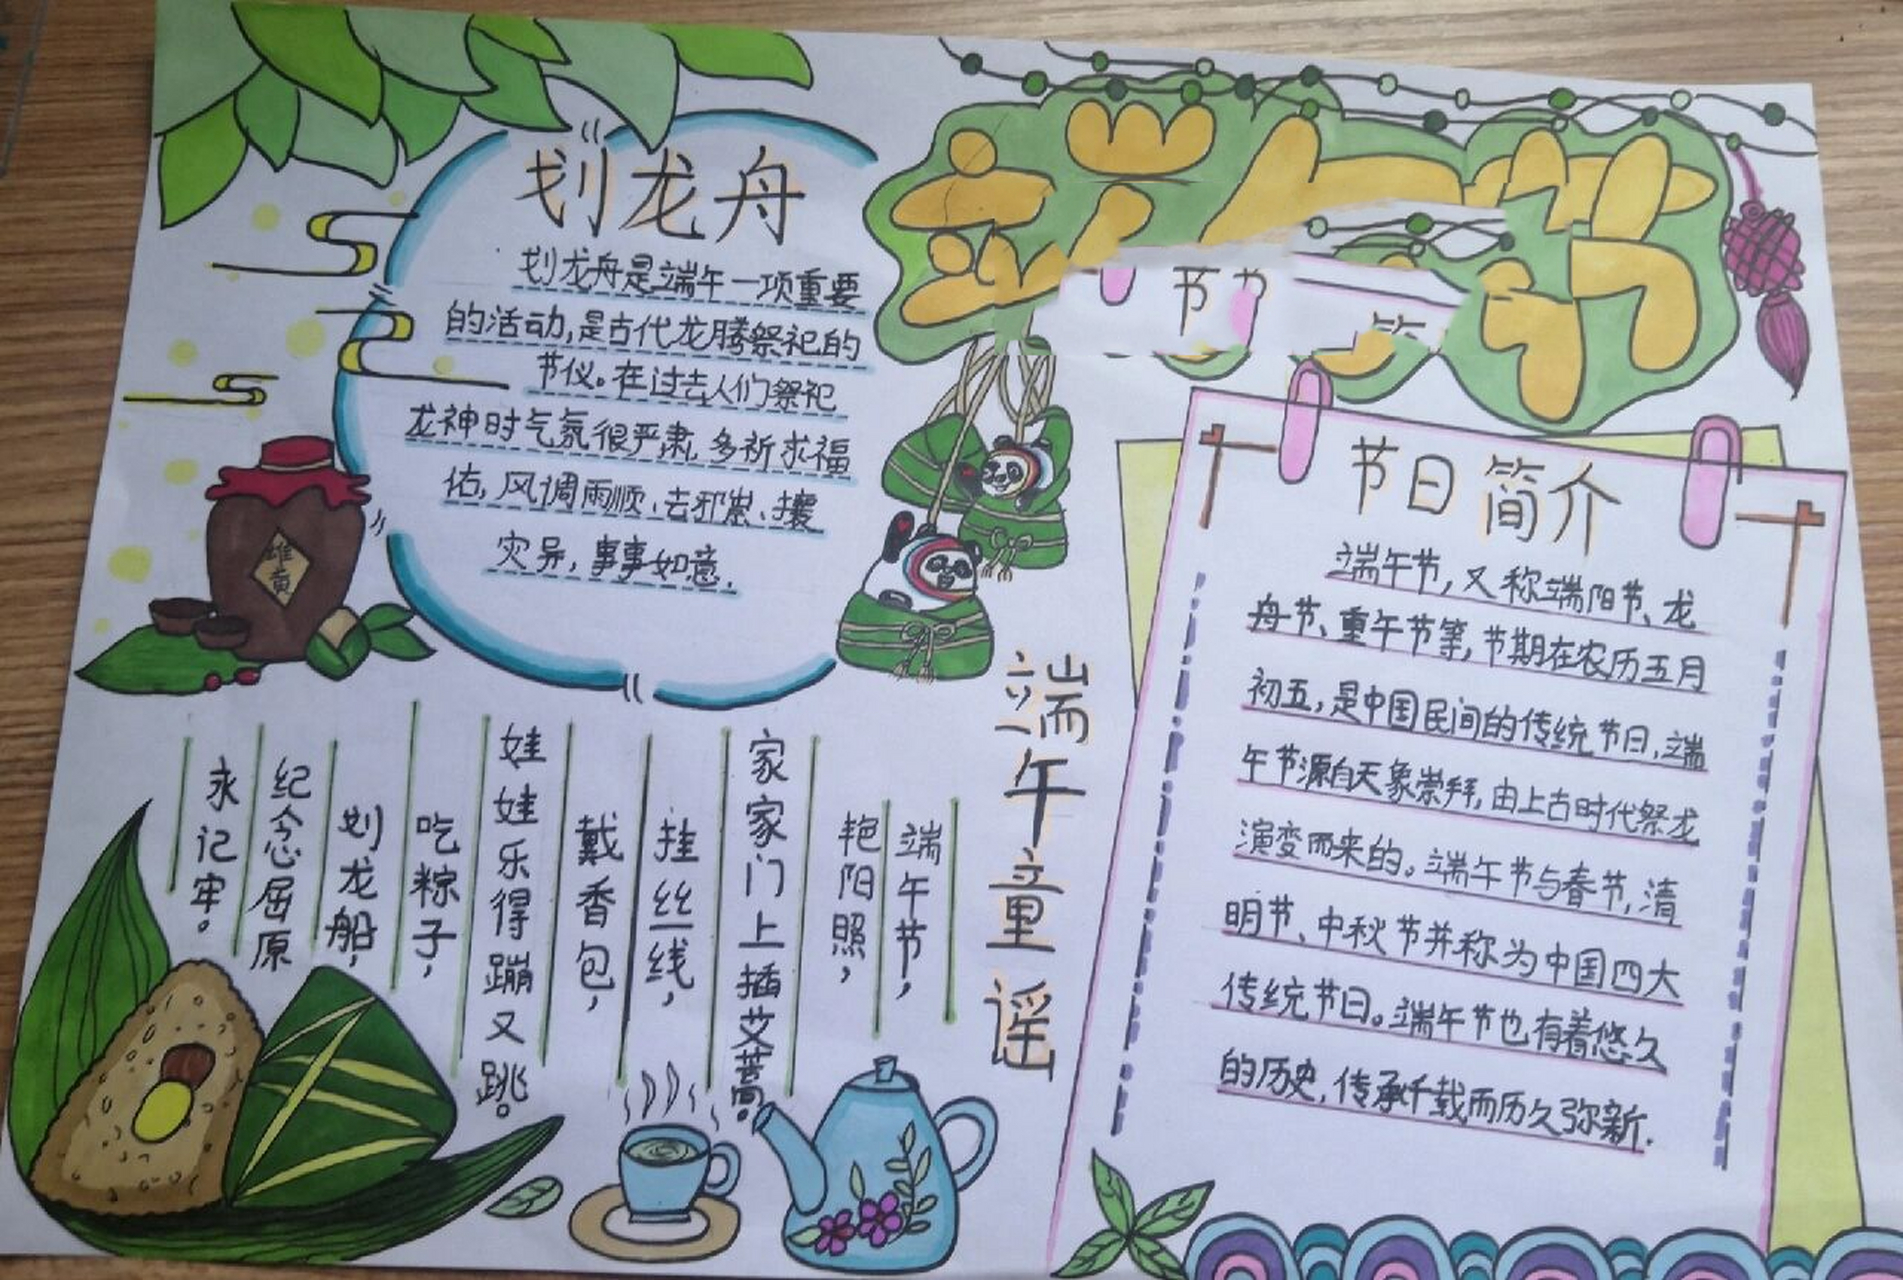 端午节
划龙舟
划龙舟是端午一项重要
的活动,是古代龙腾祭祀的
节仪。在过去人们祭祀
龙神时气氛很严肃,多祈求福
佑,风调雨顺、去邪祟、攘
灾异,事事如意.
雄
黄
节日简介
端午节,又称端阳节、龙
舟节、重午节等,节期在农历五月
初五,是中国民间的传统节日,端
午节源自天象崇拜,由上古时代祭龙
演变而来的。端午节与春节,清
明节、中秋节并称为中国四大
传统节日。端午节也有着悠久
的历史,传承千载而历久弥新.
端午童谣
端午节,
艳阳照,
家家门上插艾蒿。
挂丝线,
戴香包,
娃娃乐得蹦又跳。
吃粽子,
划龙船,
纪念屈原
永记牢。